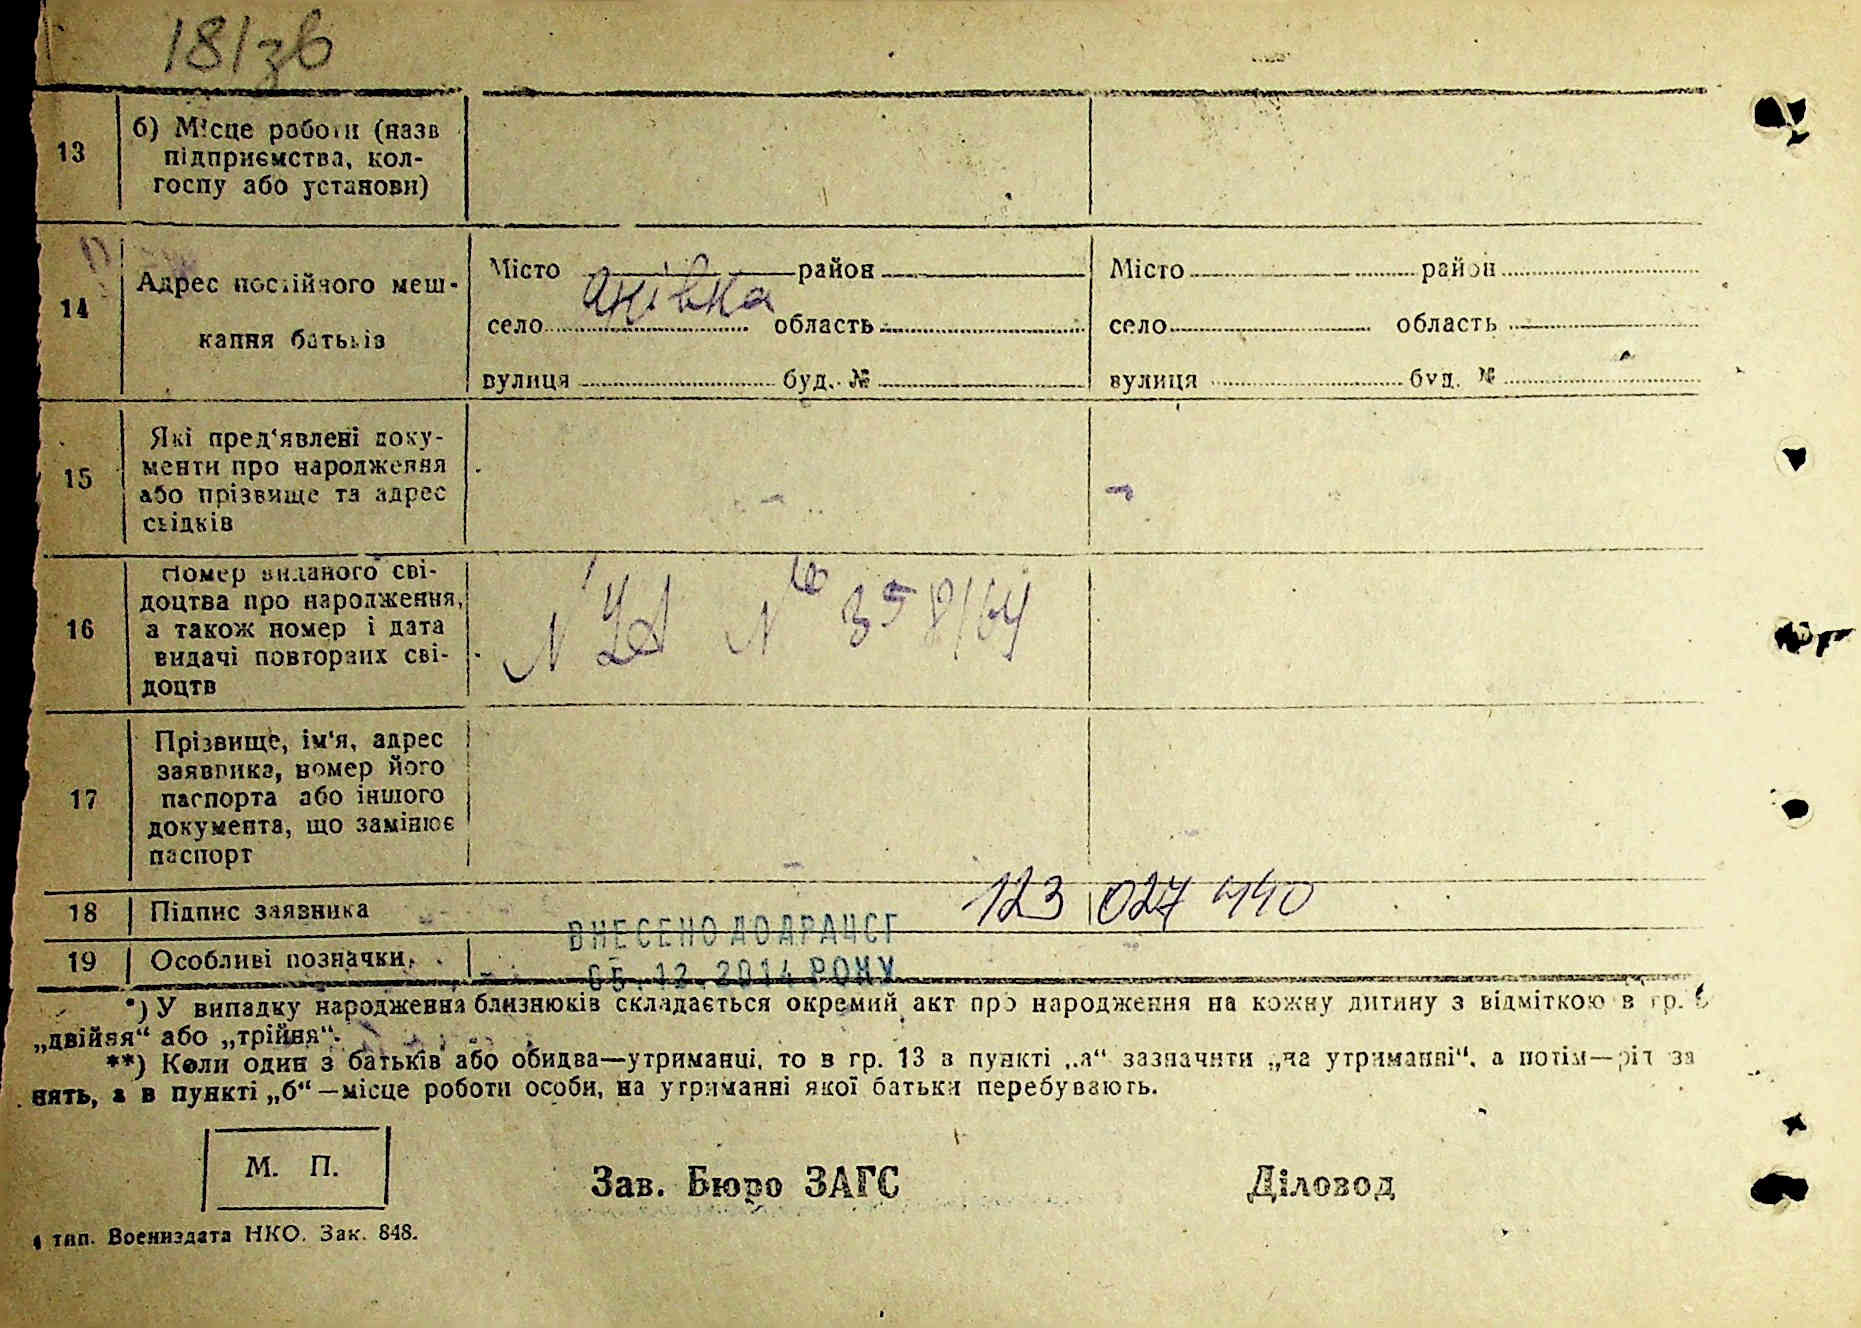 181зв
13 б) Місце роботи (назв
підприємства, кол-
госпу або установи)
14 Адрес постійного меш-
кання батьків
Місто район
село Янівка область
вулиця буд. №
Місто район
село область
вулиця буд. №
15 Які пред'явлені доку-
менти про народження
або прізвище та адрес
свідків
16 Номер виданого сві-
доцтва про народження,
а також номер і дата
видачі повторних сві-
доцтв
№ 358/64
17 Прізвище, ім'я, адрес
заявника, номер його
паспорта або іншого
документа, що замінює
паспорт
18 Підпис заявника
123 027 440
19 Особливі позначки.
ВНЕСЕНО ДО ДРАЦСГ
05.12.2014 РОКУ
*) У випадку народження близнюків складається окремий акт про народження на кожну дитину з відміткою в гр. 6
„двійня“ або „трійня“.
**) Коли один з батьків або обидва—утриманці, то в гр. 13 в пункті „а“ зазначити „на утриманні“, а потім—рід за
нять, а в пункті „б“—місце роботи особи, на утриманні якої батьки перебувають.
М. П.
Зав. Бюро ЗАГС
Діловод
4 тип. Воениздата НКО. Зак. 848.